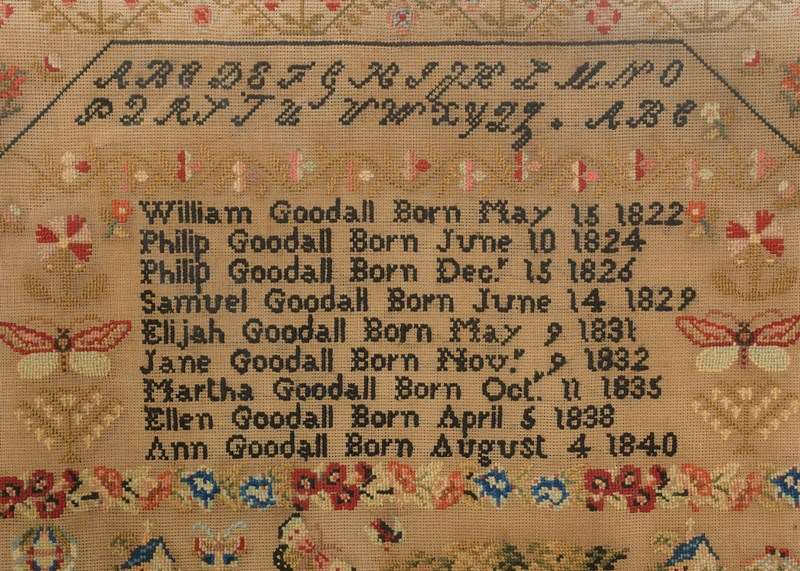 A B C D E F G H I J K L M N O
P Q R S T U V W X Y Z . A B C
William Goodall Born May 15 1822
Philip Goodall Born June 10 1824
Philip Goodall Born Dec.r 15 1826
Samuel Goodall Born June 14 1829
Elijah Goodall Born May 9 1831
Jane Goodall Born Nov.r 9 1832
Martha Goodall Born Oct.r 11 1835
Ellen Goodall Born April 5 1838
Ann Goodall Born August 4 1840